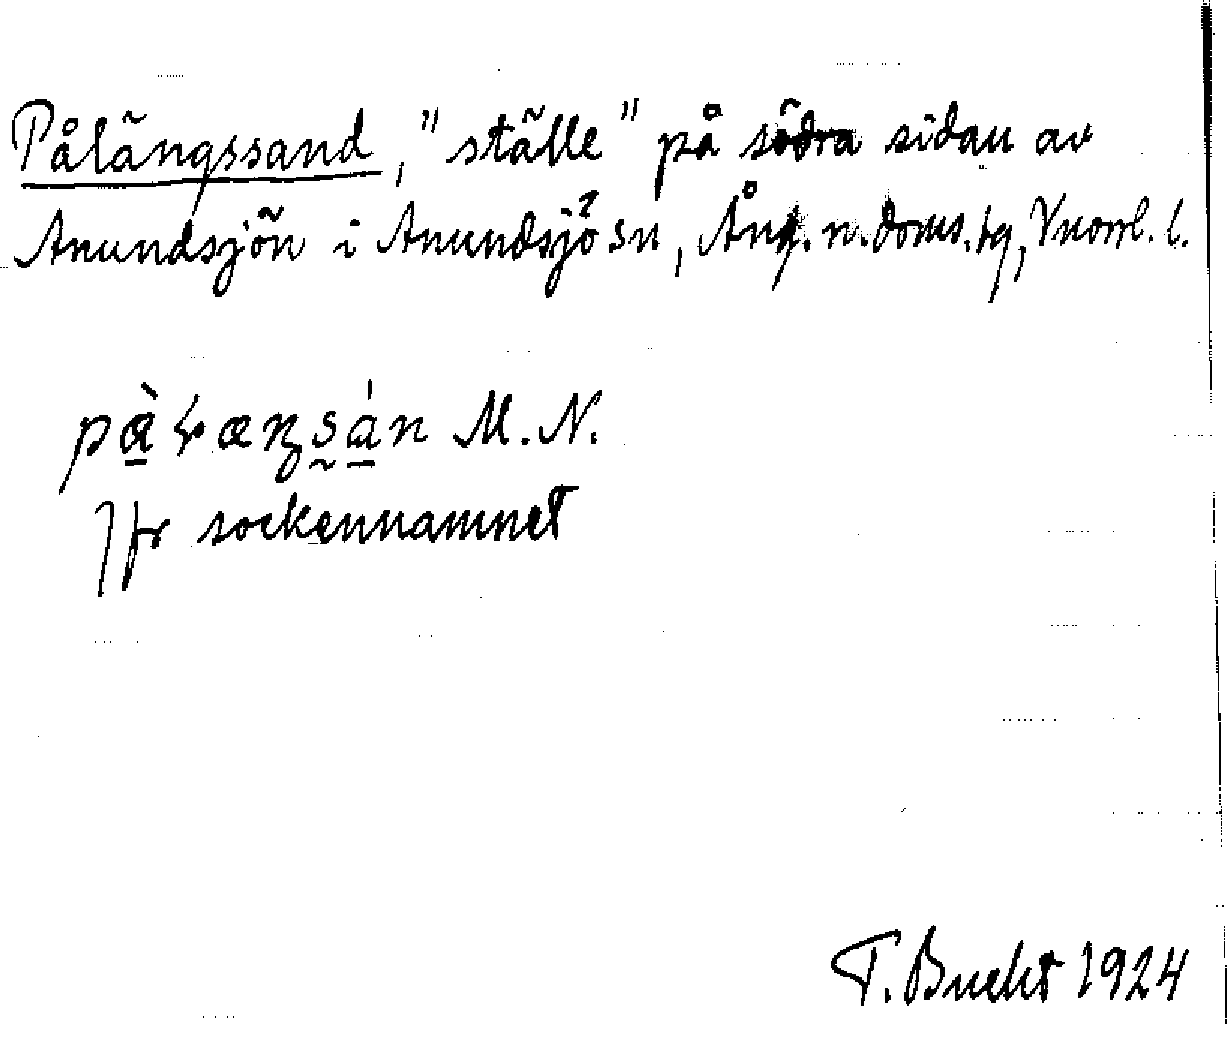 Pålängssand, "ställe" på södra sidan av
Anundsjön i Anundsjö sn, Ång. n. doms. tg, Vnorrl. l.
pàɽæŋsán M. N.
Jfr sockennamnet
T. Bucht 1924